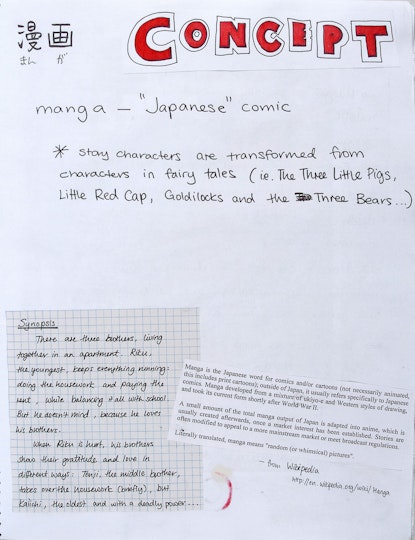 漫画
まん が
CONCEPT
manga – "Japanese" comic
* stay characters are transformed from
characters in fairy tales (ie. The Three Little Pigs,
Little Red Cap, Goldilocks and the Three Bears...)
Synopsis
There are three brothers, living
together in an apartment. Riku,
the youngest, keeps everything running:
doing the housework and paying the
rent, while balancing it all with school.
But he doesn't mind, because he loves
his brothers.
When Riku is hurt, his brothers
show their gratitude and love in
different ways: Tonji, the middle brother,
takes over the housework (briefly), but
Kaiichi, the oldest and with a deadly power...
Manga is the Japanese word for comics and/or cartoons (not necessarily animated,
this includes print cartoons); outside of Japan, it usually refers specifically to Japanese
comics. Manga developed from a mixture of ukiyo-e and Western styles of drawing,
and took its current form shortly after World War II.
A small amount of the total manga output of Japan is adapted into anime, which is
usually created afterwards, once a market interest has been established. Stories are
often modified to appeal to a more mainstream market or meet broadcast regulations.
Literally translated, manga means "random (or whimsical) pictures".
– from Wikipedia
http://en.wikipedia.org/wiki/Manga